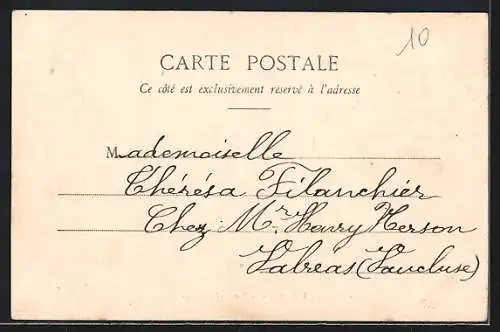 10
CARTE POSTALE
Ce côté est exclusivement réservé à l'adresse
Mademoiselle
Thérésa Filanchier
Chez Mr. Henry Merson
Valréas (Vaucluse)